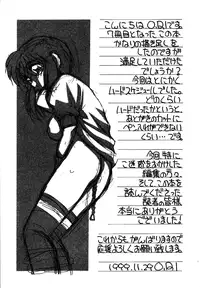 こんにちは O.RIです。
7冊目となったこの本
かなりの描き足しを
したのですが
満足していただけた
でしょうか?
今回はとにかく
ハードスケジュールでした。
どのくらい
ハードだったかというと
あとがきのカットに
ペン入れができない
くらい…です
今回特に
ご迷惑をおかけした
編集の方々、
そして この本を
読んでくださった
読者の皆様
本当にありがとう
ございました!
これからもがんばりますので
応援よろしくお願い致します。
1999.11.29 O.RI